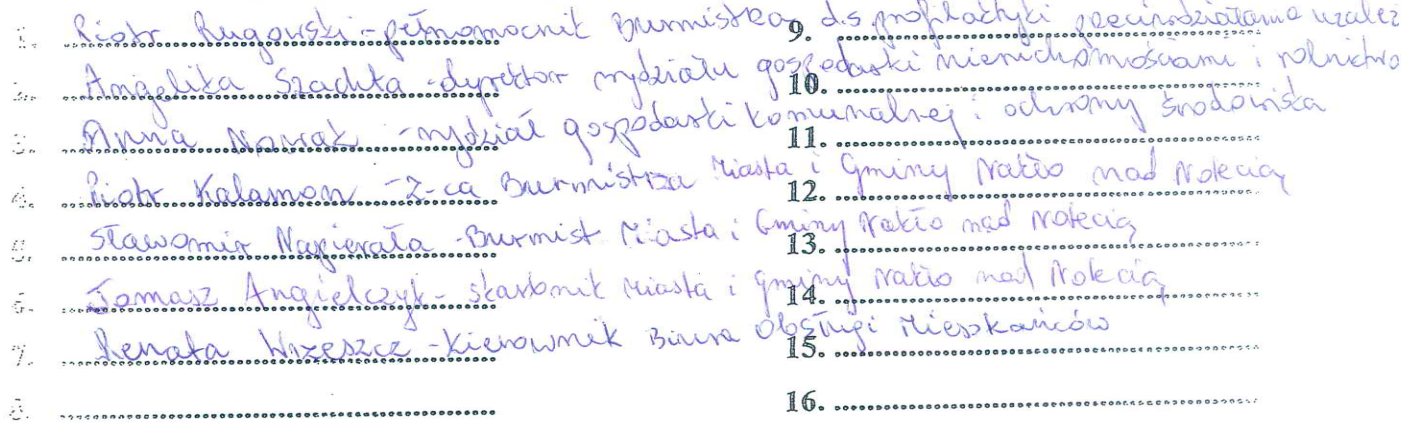 1. Piotr Rugowski - pełnomocnik Burmistrza d.s. profilaktyki przeciwdziałania uzależ
2. Angelika Szachta - dyrektor wydziału gospodarki nieruchomościami i rolnictwa
3. Anna Nowak - wydział gospodarki komunalnej i ochrony środowiska
4. Piotr Kalamon - Z-ca Burmistrza Miasta i Gminy Nakło nad Notecią
5. Sławomir Napierała - Burmist Miasta i Gminy Nakło nad Notecią
6. Tomasz Angielczyk - skarbnik Miasta i Gminy Nakło nad Notecią
7. Renata Wrzeszcz - Kierownik Biura Obsługi Mieszkańców
8.
9.
10.
11.
12.
13.
14.
15.
16.